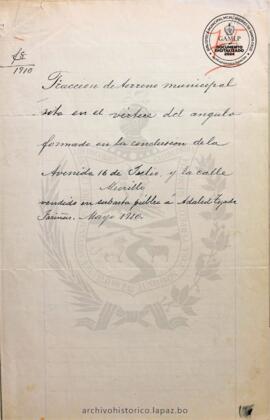 48
1910
GAMLP
DOCUMENTO
DIGITALIZADO
Fracción de terreno municipal
sito en el vértice del angulo
formado en la conclusion de la
Avenida 16 de Julio y la calle
Murillo
vendido en subasta publica á Adalid Tejada
Fariñas. Mayo 1910.
archivohistorico.lapaz.bo